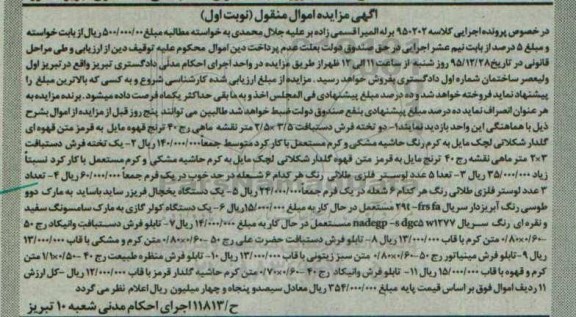 آگهی مزایده اموال منقول (نوبت اول)
در خصوص پرونده اجرایی کلاسه ۹۵۰۲۰۲ برله المیرا قسمی زاده بر علیه جلال محمدی به خواسته مطالبه مبلغ ۵۰۰/۰۰۰/۰۰۰ ریال از بابت خواسته
و مبلغ ۵ درصد از بابت نیم عشر اجرایی در حق صندوق دولت بعلت عدم پرداخت دین اموال محکوم علیه توقیف دین از ارزیابی و طی مراحل
قانونی در تاریخ ۹۵/۱۲/۲۸ روز شنبه از ساعت ۱۱ الی ۱۲ ظهر از طریق مزایده در واحد اجرای احکام مدنی دادگستری تبریز واقع در تبریز اول
ولیعصر ساختمان شماره اول دادگستری بفروش خواهد رسید . مزایده از مبلغ ارزیابی شده کارشناسی شروع و به کسی که بالاترین مبلغ را
پیشنهاد نماید فروخته خواهد شد و ده درصد مبلغ پیشنهادی فی المجلس اخذ و به ما بقی حداکثر یکماه فرصت داده میشود . برنده مزایده به
هر عنوان انصراف نماید ده درصد مبلغ پیشنهادی بنفع صندوق دولت ضبط خواهد شد طالبین می توانند پنج روز قبل از مزایده از اموال بشرح
ذیل با هماهنگی این واحد بازدید نمایند ۱- دو تخته فرش دستبافت ۳/۵×۲/۵ متر نقشه ماهی رج ۴۰ ترنج قهوه مایل به قرمز متن قهوه ای
گلدار شکلاتی لچک مایل به کرم رنگ حاشیه مشکی و کرم مستعمل با کارکرد متوسط جمعاً ۱۴۰/۰۰۰/۰۰۰ ریال ۲- یک تخته فرش دستبافت
۲×۳ متر ماهی نقشه رج ۴۰ ترنج مایل به قرمز متن قهوه گلدار شکلاتی لچک مایل به کرم حاشیه مشکی و کرم مستعمل با کار کرد نسبتاً
زیاد ۳۵/۰۰۰/۰۰۰ ریال ۳- تعدا ۵ عدد لوستر فلزی طلائی رنگ هر کدام ۶ شعله در حد خوب در یک فرم جمعاً ۶۰/۰۰۰/۰۰۰ ریال ۴- تعداد
۳ عدد لوستر فلزی طلائی رنگ هر کدام ۶ شعله در یک فرم جمعاً ۲۴/۰۰۰/۰۰۰ ریال ۵- یک دستگاه یخچال فریزر ساید باساید به مارک دوو
طوسی رنگ آبریزدار سریال frsfa-۲۹۱ مستعمل در حال کار به مبلغ ۱۵/۰۰۰/۰۰۰ ریال ۶- یک دستگاه کولر گازی به مارک سامسونگ سفید
و نقره ای رنگ سریال nadegp -sdgc۵ w۱۲۷۷ مستعمل در حال کار به مبلغ ۱۴/۰۰۰/۰۰۰ ریال ۷- تابلو فرش دستبافت وانیکاد رج ۵۰
۰/۶۰×۰/۸۰ متن کرم با قاب ۱۳/۰۰۰/۰۰۰ ریال ۸- تابلو فرش دستبافت حضرت علی رج ۵۰ ۰/۶۰×۰/۸۰ متن کرم و مشکی با قاب ۱۳/۰۰۰/۰۰۰
ریال ۹- تابلو فرش مینیاتور رج ۵۰ ۰/۶۰×۰/۸۰ متن سبز زیتونی با قاب ۱۳/۰۰۰/۰۰۰ ریال ۱۰- تابلو فرش منظره طبیعت رج ۴۰ ۰/۵۰×۱/۱۰ متن
کرم و قهوه با قاب ۱۵/۰۰۰/۰۰۰ ریال ۱۱- تابلو فرش وانیکاد رج ۴۰ ۰/۶۰×۰/۷۰ متن کرم حاشیه گلدار قرمز با قاب ۱۲/۰۰۰/۰۰۰ ریال -کل ارزش
۱۱ ردیف اموال فوق بر اساس قیمت پایه مبلغ ۳۵۴/۰۰۰/۰۰۰ ریال معادل سیصد و پنجاه و چهار میلیون ریال اعلام نظر می گردد
ح/۱۱۸۱۳ اجرای احکام مدنی شعبه ۱۰ تبریز